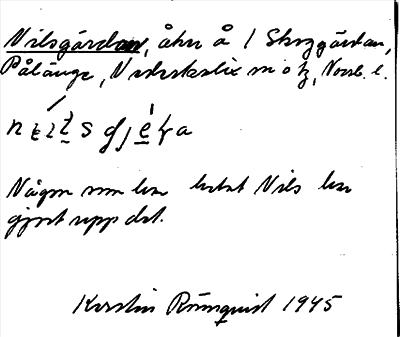 Nilsgärdan, åker å 1 Skogsgärdan,
Pålänge, Nederkalix sn o tg, Norrb. l.
Någon som har hetat Nils har
gjort upp det.
Kerstin Rönnquist 1945